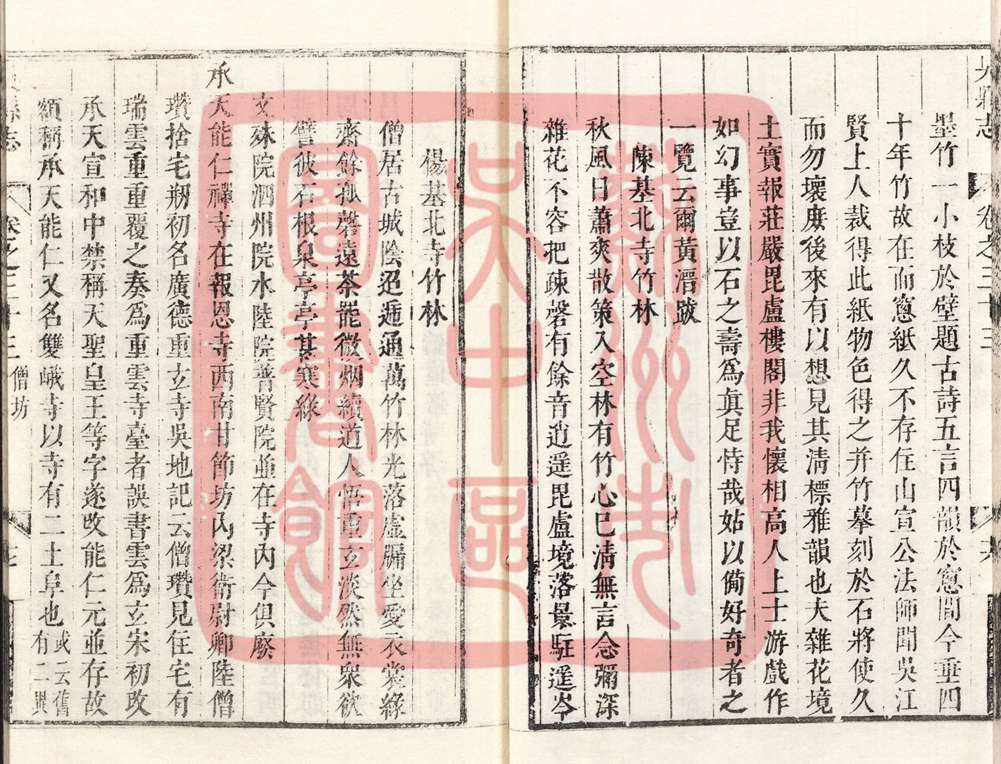 墨竹一小枝於壁題古詩五言四韻於窻間今垂四
十年竹故在而窻紙久不存住山宣公法師聞吳江
賢上人裁得此紙物色得之并竹摹刻於石將使久
而勿壞庶後來有以想見其清標雅韻也夫雜花境
土實報莊嚴毘盧樓閣非我懷相高人上士游戲作
如幻事豈以石之壽為真足恃哉姑以備好奇者之
一覽云爾黃溍跋
陳基北寺竹林
秋風日蕭爽散策入空林有竹心已清無言念彌深
雜花不容把疎磬有餘音逍遥毘盧境落景駐遥岑
楊基北寺竹林
僧居古城陰迢遞通萬竹林光落虛牖坐愛衣裳綠
齋餘孤磬遠茶罷微烟續道人悟重玄淡然無衆欲
譬彼石根泉亭亭甚寒綠
文殊院泗州院水陸院普賢院並在寺內今俱廢
承天能仁禪寺在報恩寺西南甘節坊內梁衛尉卿陸僧
瓚捨宅剏初名廣德重玄寺吳地記云僧瓚見住宅有
瑞雲重重覆之奏為重雲寺臺者誤書雲為玄宋初改
承天宣和中禁稱天聖皇王等字遂改能仁元並存故
額稱承天能仁又名雙峨寺以寺有二土阜也或云舊有二異
卷之三十三
僧坊
蘇州市
吳中區
圖書館